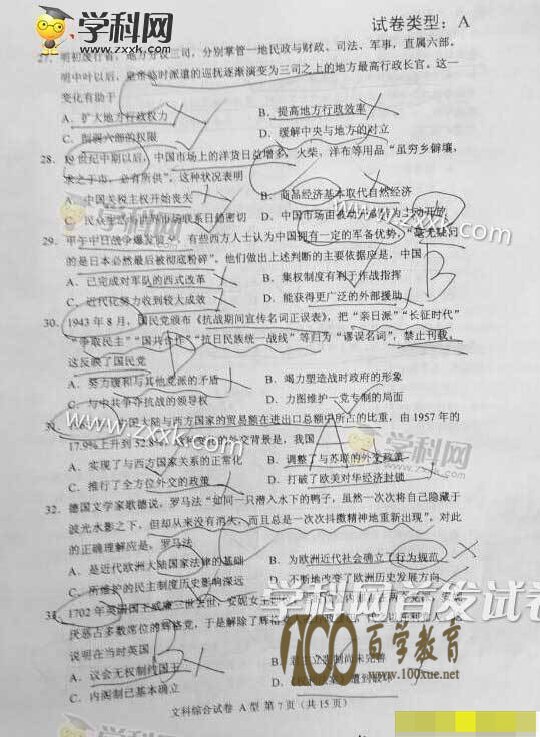 学科网
www.zxxk.com
试卷类型：A
27. 明初废行省，地方分设三司，分别掌管一地民政与财政、司法、军事，直属六部。
明中叶以后，皇帝临时派遣的巡抚逐渐演变为三司之上的地方最高行政长官。这一
变化有助于
A．扩大地方行政权力 B．提高地方行政效率
C．削弱六部的权限 D．缓解中央与地方的对立
28. 19世纪中期以后，中国市场上的洋货日益增多，火柴、洋布等用品“虽穷乡僻壤，
求之于市，必有所供”。这种状况表明
A．中国关税主权开始丧失 B．商品经济基本取代自然经济
C．民众生活与世界市场联系日趋密切 D．中国市场由被动开放转为主动开放
29. 甲午中日战争爆发前夕，有些西方人士认为中国拥有一定的军备优势，“毫无疑问
的是日本必然最后被彻底粉碎”。他们做出上述判断的主要依据应是，中国
A．已完成对军队的西式改革 B．集权制度有利于作战指挥
C．近代化努力收到较大成效 D．能获得更广泛的外部援助
30. 1943年8月，国民党颁布《抗战期间宣传名词正误表》，把“亲日派”“长征时代”
“争取民主”“国共合作”“抗日民族统一战线”等归为“谬误名词”，禁止刊载，
这反映了国民党
A．努力缓和与其他党派的矛盾 B．竭力塑造战时政府的形象
C．与中共争夺抗战的领导权 D．力图维护一党专制的局面
中国大陆与西方国家的贸易额在进出口总额中所占的比重，由1957年的
17.9%上升到52.8% 的外交背景是，我国
A．实现了与西方国家关系的正常化 B．调整了与苏联的外交政策
C．推行了全方位外交的政策 D．打破了欧美对华经济封锁
32. 德国文学家歌德说，罗马法“如同一只潜入水下的鸭子，虽然一次次将自己隐藏于
波光水影之下，但却从来没有消失，而且总是一次次抖擞精神地重新出现”。对此
的正确理解应是，罗马法
A．是近代欧洲大陆国家法律的基础 B．为欧洲近代社会确立了行为规范
C．所维护的民主制度历史影响深远 D．不断地改变了欧洲历史发展方向
1702年英国国王威廉三世去世，安妮女王
厌恶占多数席位的辉格党，于是解除了辉格党
说明在当时英国
A．议会无权制约国王 B．君主立宪制尚未完善
C．内阁制已基本确立
文科综合试卷 A型 第7页（共15页）
学科网
学科网首发试卷
100百学教育
www.100xue.net